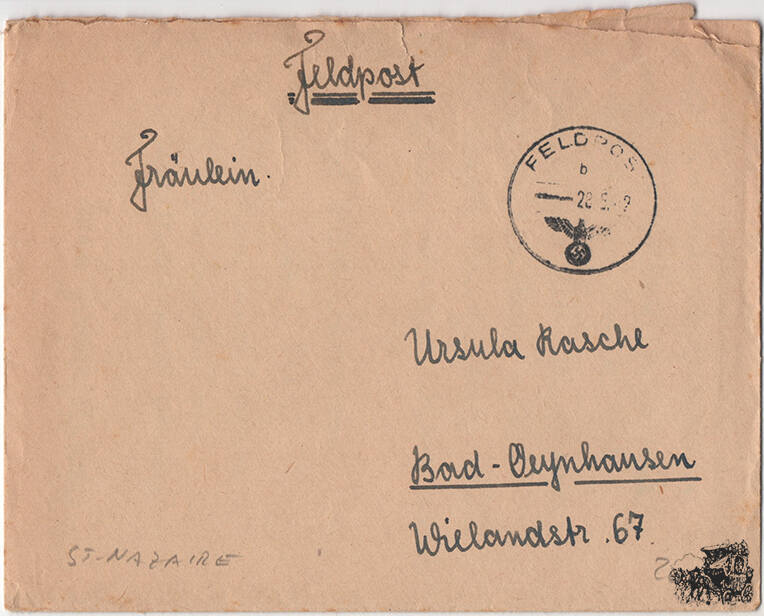 Feldpost
Fräulein.
FELDPOS
b
Ursula Rasche
Bad-Oeynhausen
Wielandstr. 67.
ST-NAZAIRE